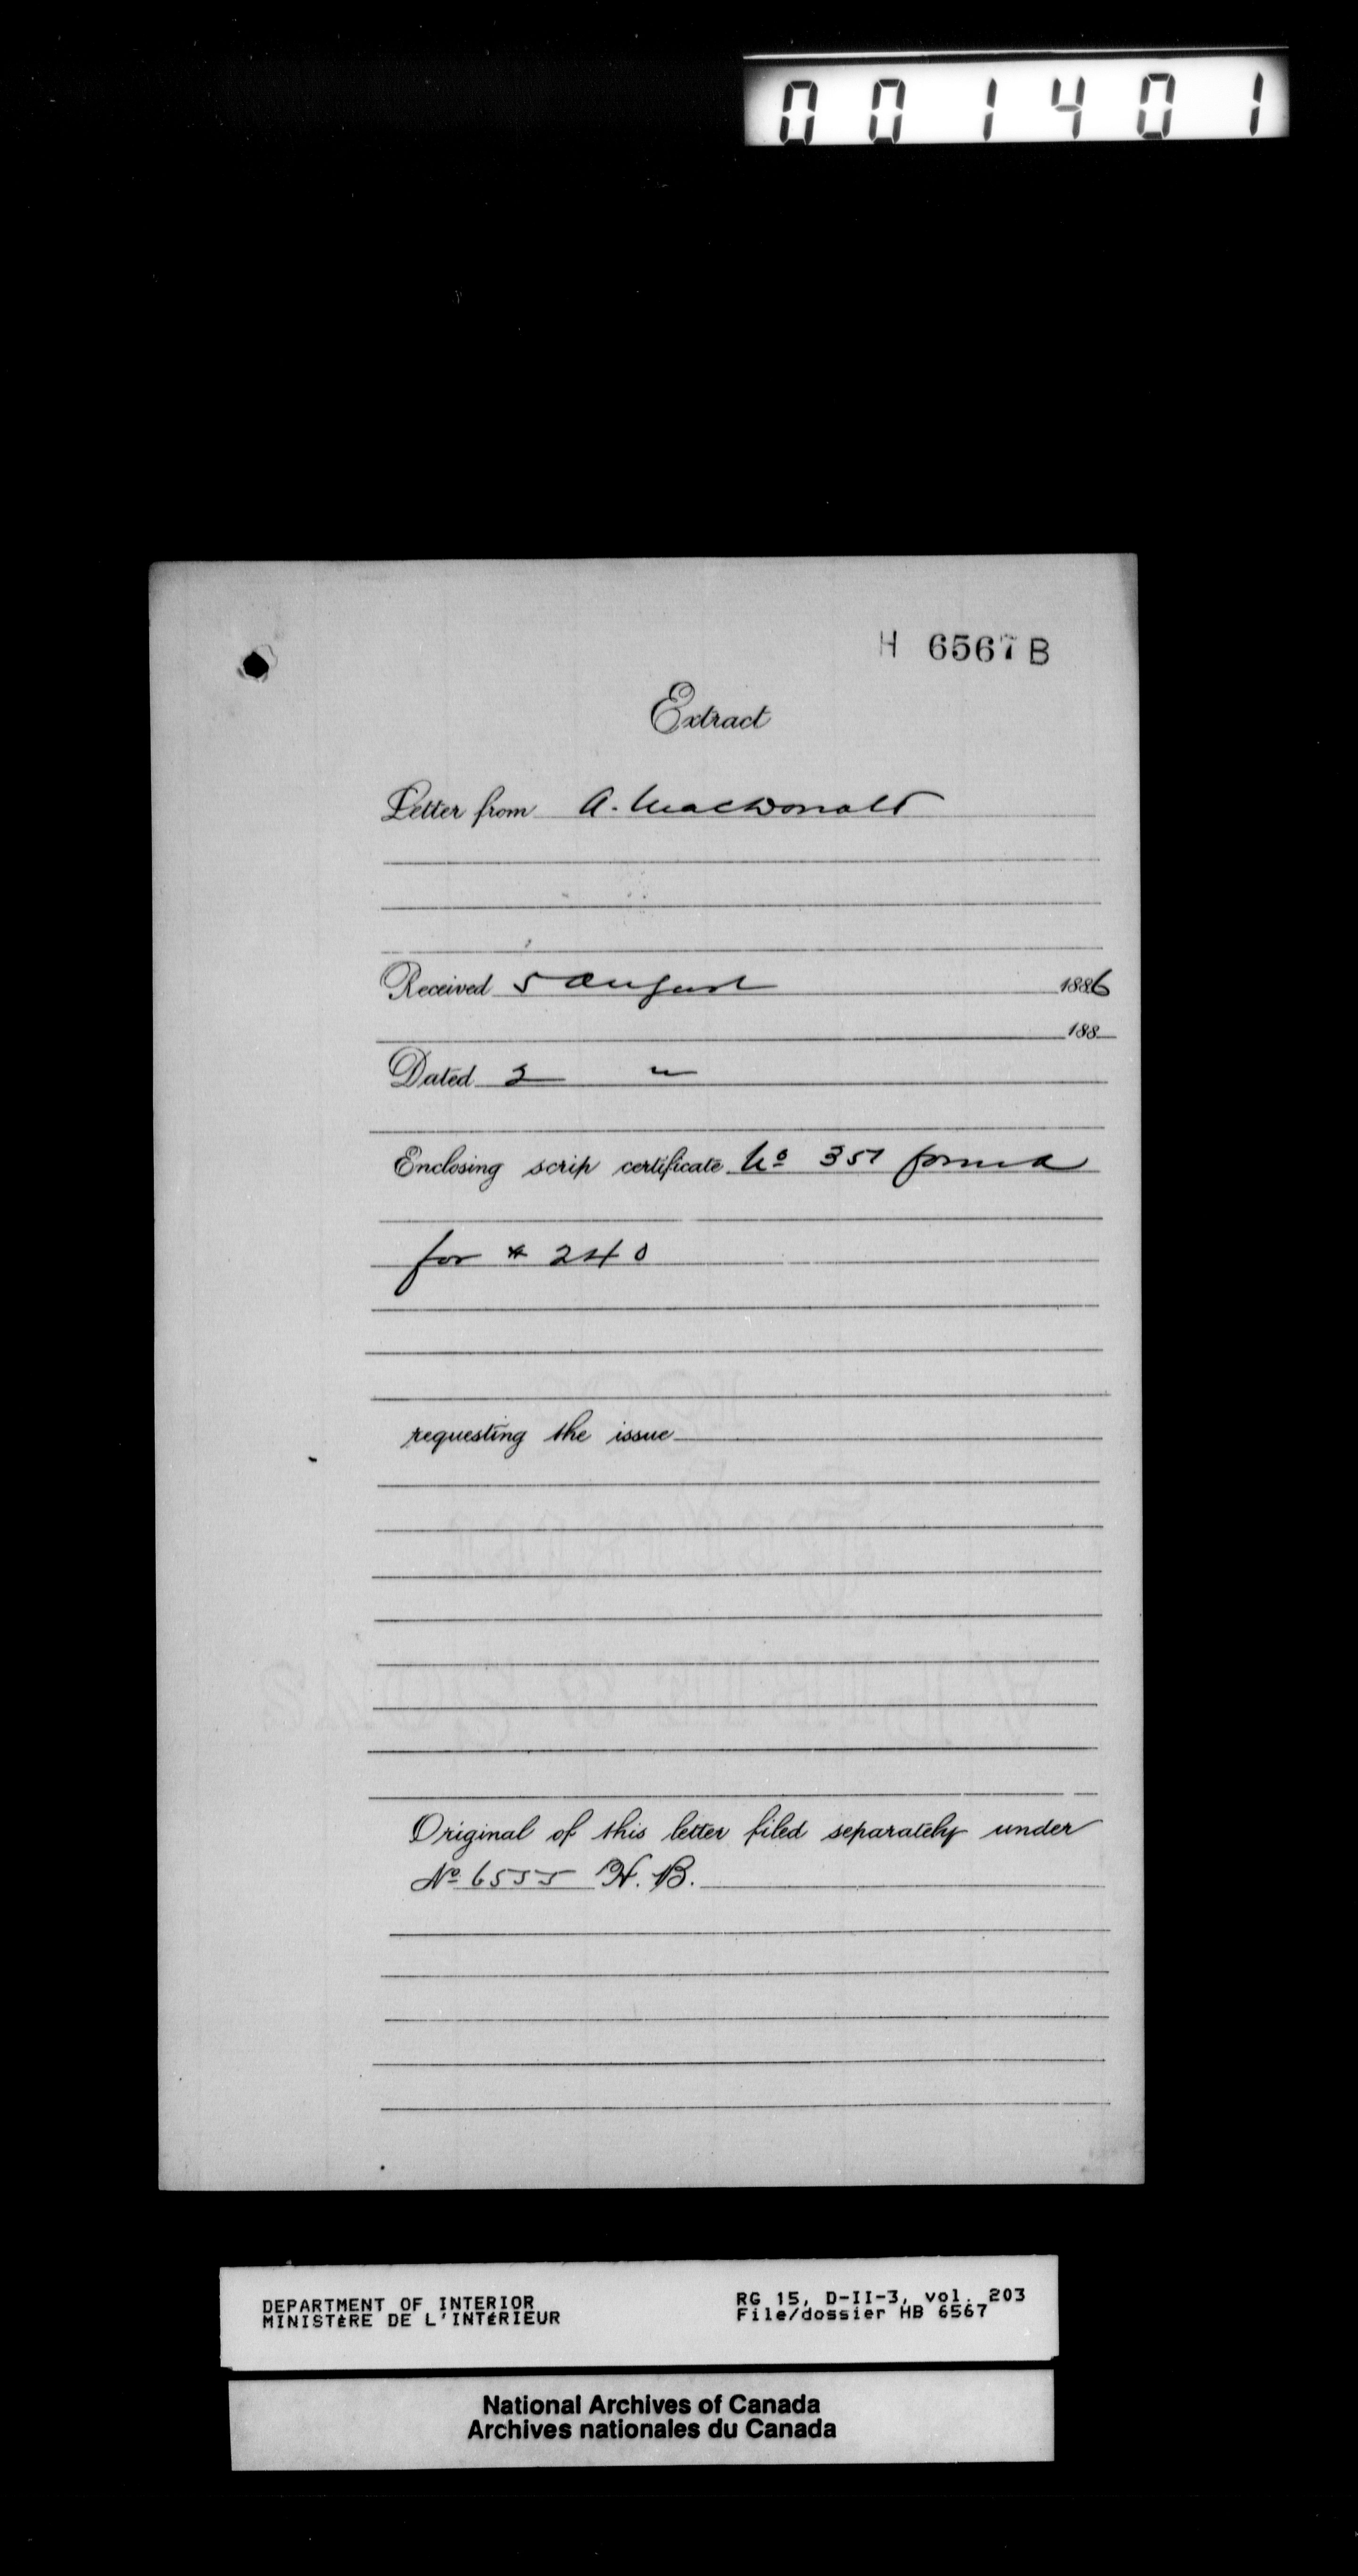 001401
H 6567 B
Extract
Letter from A. MacDonald
Received 5 August 1886
188
Dated 2 "
Enclosing scrip certificate No 351 form
for $ 240
requesting the issue
Original of this letter filed separately under
No 6555 H. B.
DEPARTMENT OF INTERIOR
MINISTÈRE DE L'INTÉRIEUR
RG 15, D-II-3, vol. 203
File/dossier HB 6567
National Archives of Canada
Archives nationales du Canada